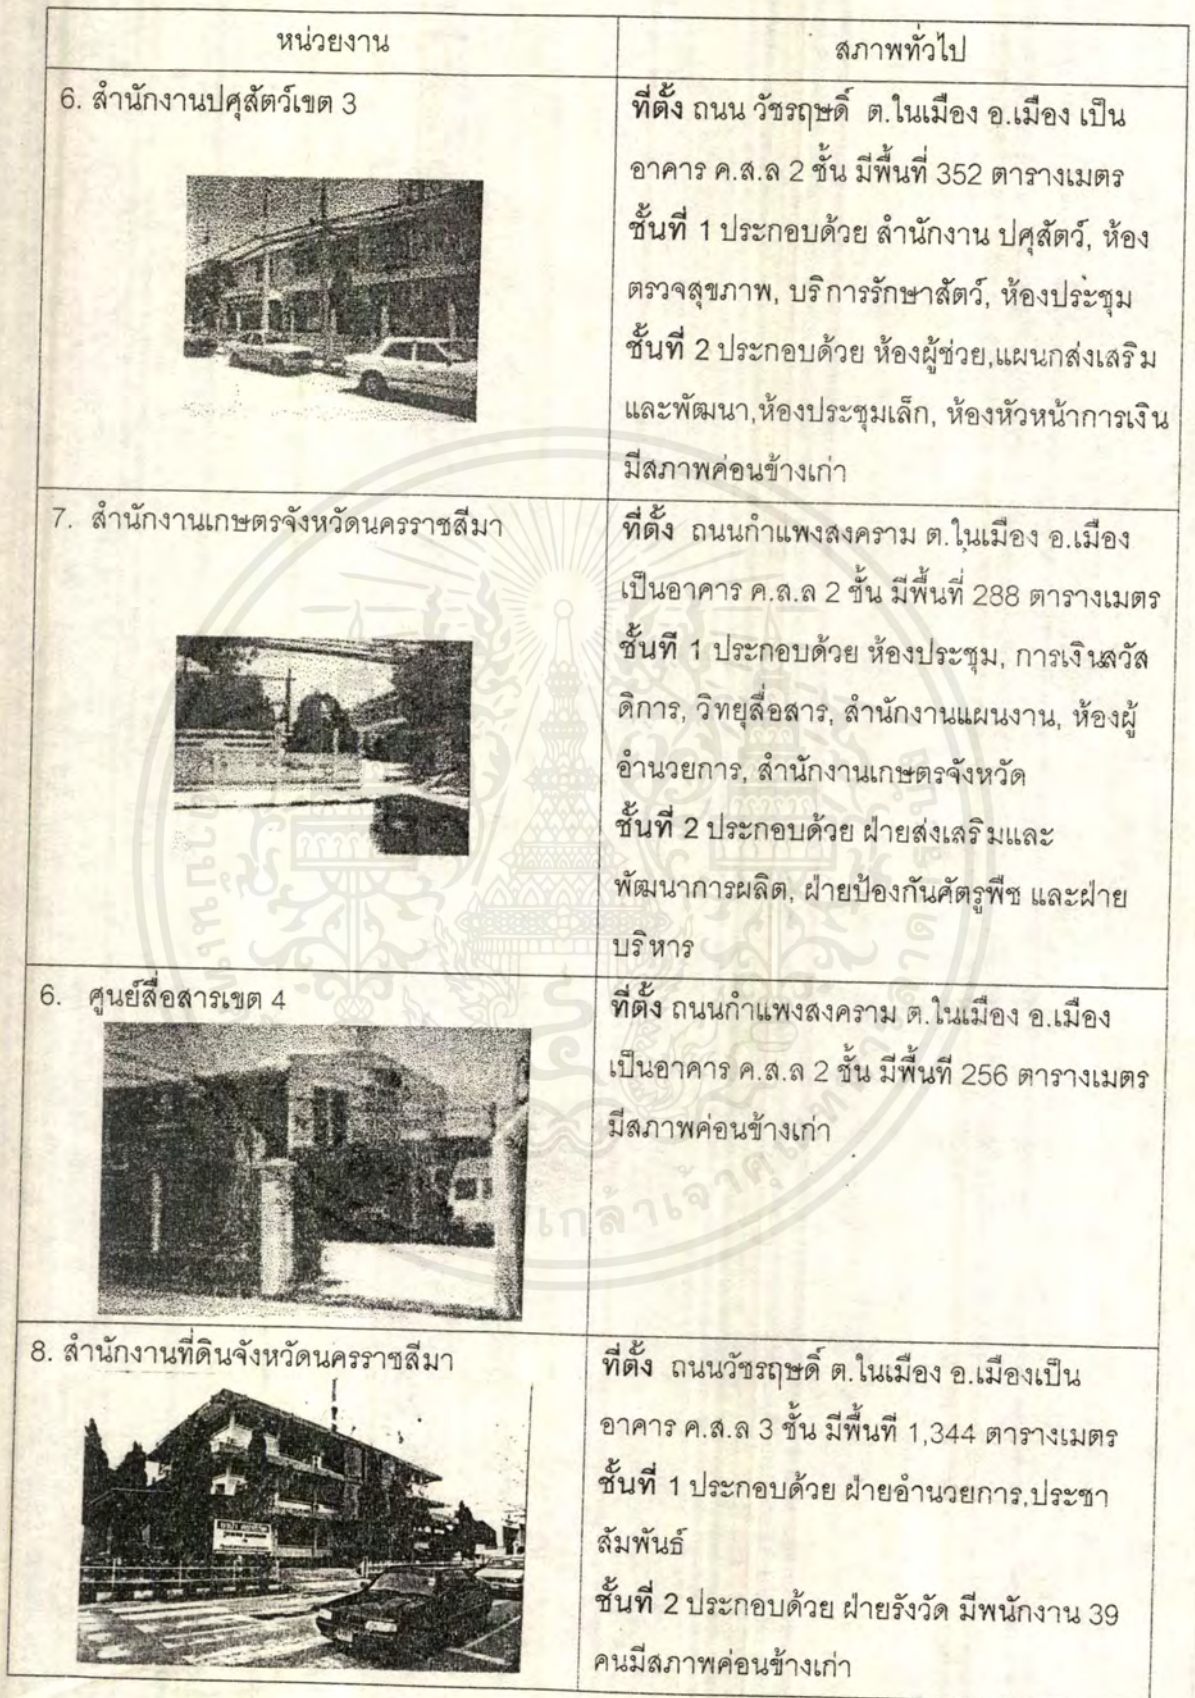 หน่วยงาน
สภาพทั่วไป
6. สำนักงานปศุสัตว์เขต 3
ที่ตั้ง ถนน วัชรฤษดิ์ ต.ในเมือง อ.เมือง เป็น
อาคาร ค.ส.ล 2 ชั้น มีพื้นที่ 352 ตารางเมตร
ชั้นที่ 1 ประกอบด้วย สำนักงาน ปศุสัตว์, ห้อง
ตรวจสุขภาพ, บริการรักษาสัตว์, ห้องประชุม
ชั้นที่ 2 ประกอบด้วย ห้องผู้ช่วย,แผนกส่งเสริม
และพัฒนา,ห้องประชุมเล็ก, ห้องหัวหน้าการเงิน
มีสภาพค่อนข้างเก่า
7. สำนักงานเกษตรจังหวัดนครราชสีมา
ที่ตั้ง ถนนกำแพงสงคราม ต.ในเมือง อ.เมือง
เป็นอาคาร ค.ส.ล 2 ชั้น มีพื้นที่ 288 ตารางเมตร
ชั้นที่ 1 ประกอบด้วย ห้องประชุม, การเงินสวัส
ดิการ, วิทยุสื่อสาร, สำนักงานแผนงาน, ห้องผู้
อำนวยการ, สำนักงานเกษตรจังหวัด
ชั้นที่ 2 ประกอบด้วย ฝ่ายส่งเสริมและ
พัฒนาการผลิต, ฝ่ายป้องกันศัตรูพืช และฝ่าย
บริหาร
6. ศูนย์สื่อสารเขต 4
ที่ตั้ง ถนนกำแพงสงคราม ต.ในเมือง อ.เมือง
เป็นอาคาร ค.ส.ล 2 ชั้น มีพื้นที่ 256 ตารางเมตร
มีสภาพค่อนข้างเก่า
8. สำนักงานที่ดินจังหวัดนครราชสีมา
ที่ตั้ง ถนนวัชรฤษดิ์ ต.ในเมือง อ.เมืองเป็น
อาคาร ค.ส.ล 3 ชั้น มีพื้นที่ 1,344 ตารางเมตร
ชั้นที่ 1 ประกอบด้วย ฝ่ายอำนวยการ,ประชา
สัมพันธ์
ชั้นที่ 2 ประกอบด้วย ฝ่ายรังวัด มีพนักงาน 39
คนมีสภาพค่อนข้างเก่า